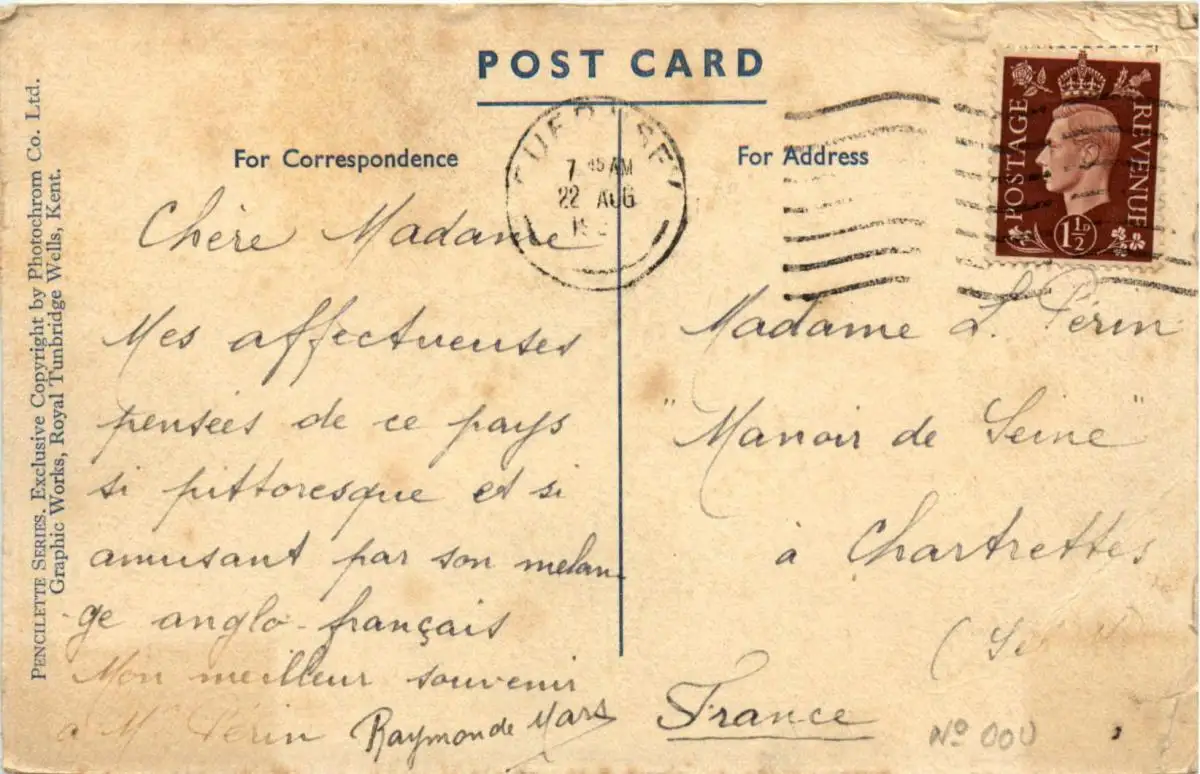 POST CARD
For Correspondence
For Address
PENCILETTE SERIES. Exclusive Copyright by Photochrom Co. Ltd.
Graphic Works, Royal Tunbridge Wells, Kent.
7 45 AM
22 AUG
POSTAGE REVENUE
1½D
Chère Madame
Mes affectueuses
pensées de ce pays
si pittoresque et si
amusant par son melan-
ge anglo-français
Mon meilleur souvenir
à Mr Périn Raymonde Mars
Madame L. Périn
"Manoir de Seine"
à Chartrettes
France
Nº 000